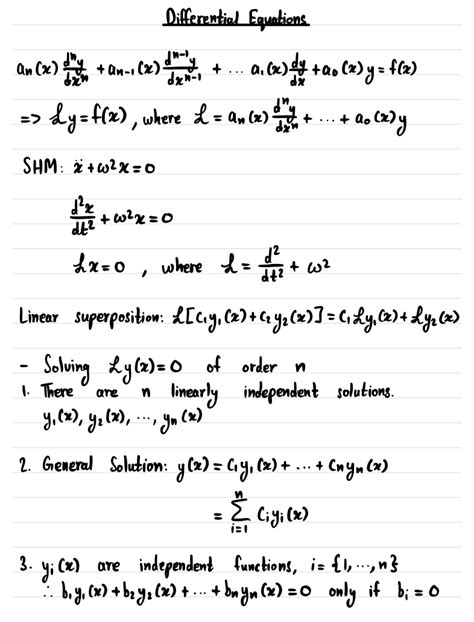 Differential Equations
aₙ(x) dⁿy/dxⁿ + aₙ₋₁(x) dⁿ⁻¹y/dxⁿ⁻¹ + ... a₁(x) dy/dx + a₀(x)y = f(x)
=> ℒy = f(x), where ℒ = aₙ(x) dⁿy/dxⁿ + ... + a₀(x)y
SHM: ẍ + ω²x = 0
d²x/dt² + ω²x = 0
ℒx = 0 , where ℒ = d²/dt² + ω²
Linear superposition: ℒ[c₁y₁(x) + c₂y₂(x)] = c₁ℒy₁(x) + ℒy₂(x)
- Solving ℒy(x) = 0 of order n
1. There are n linearly independent solutions.
y₁(x), y₂(x), ..., yₙ(x)
2. General Solution: y(x) = c₁y₁(x) + ... + cₙyₙ(x)
= ∑ᵢ₌₁ⁿ cᵢyᵢ(x)
3. yᵢ(x) are independent functions, i = {1, ..., n}
∴ b₁y₁(x) + b₂y₂(x) + ... + bₙyₙ(x) = 0 only if bᵢ = 0